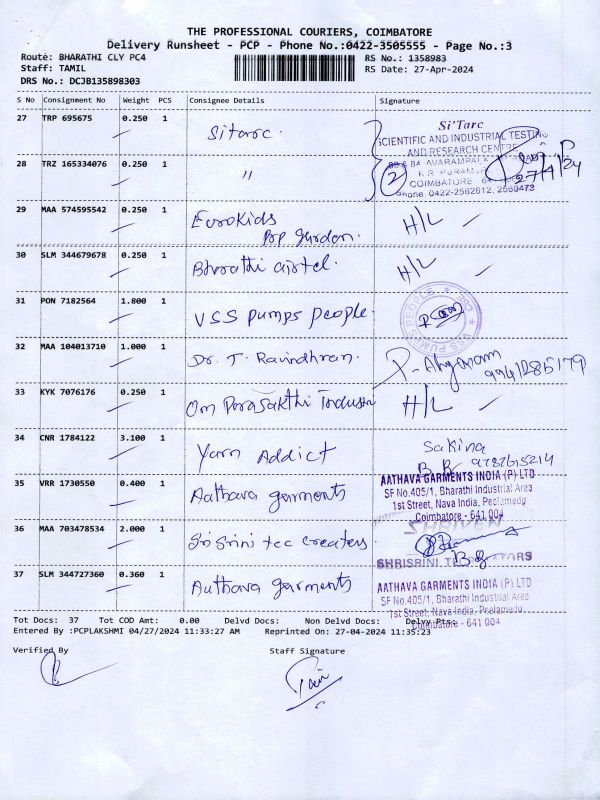 THE PROFESSIONAL COURIERS, COIMBATORE
Delivery Runsheet - PCP - Phone No.:0422-3505555 - Page No.:3
Route: BHARATHI CLY PC4 RS No.: 1358983
Staff: TAMIL RS Date: 27-Apr-2024
DRS No.: DCJB135898303
S No Consignment No Weight PCS Consignee Details Signature
27 TRP 695675 0.250 1 Sitarc. Si'Tarc
SCIENTIFIC AND INDUSTRIAL TESTING
AND RESEARCH CENTRE
28 TRZ 165334076 0.250 1 " 2 27/4/24
COIMBATORE
Phone. 0422-2562612, 2560473
29 MAA 574595542 0.250 1 EuroKids H/L
30 SLM 344679678 0.250 1 Bharathi airtel. H/L
31 PON 7182564 1.800 1 VSS pumps people. VSS PUMPS PEOPLE CBE
32 MAA 104013710 1.000 1 Dr. T. Ravindhran.
33 KYK 7076176 0.250 1 Om Parasakthi H/L
34 CNR 1784122 3.100 1 Yarn Addict Sakina
9787615214
35 VRR 1730550 0.400 1 Aathava garments AATHAVA GARMENTS INDIA (P) LTD
SF No.405/1, Bharathi Industrial Area
1st Street, Nava India, Peelamedu
Coimbatore - 641 004
36 MAA 703478534 2.000 1 Sri Srini tec creaters. SHRIVEN
37 SLM 344727360 0.360 1 Aathava garments AATHAVA GARMENTS INDIA (P) LTD
SF No.405/1, Bharathi Industrial Area
1st Street, Nava India, Peelamedu
Coimbatore - 641 004
Tot Docs: 37 Tot COD Amt: 0.00 Delvd Docs: Non Delvd Docs: Delvy Pts:
Entered By :PCPLAKSHMI 04/27/2024 11:33:27 AM Reprinted On: 27-04-2024 11:35:23
Verified By Staff Signature